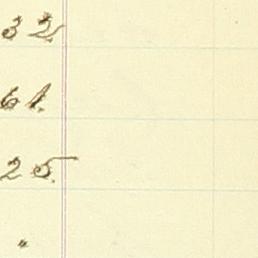 32
61.
25.
"